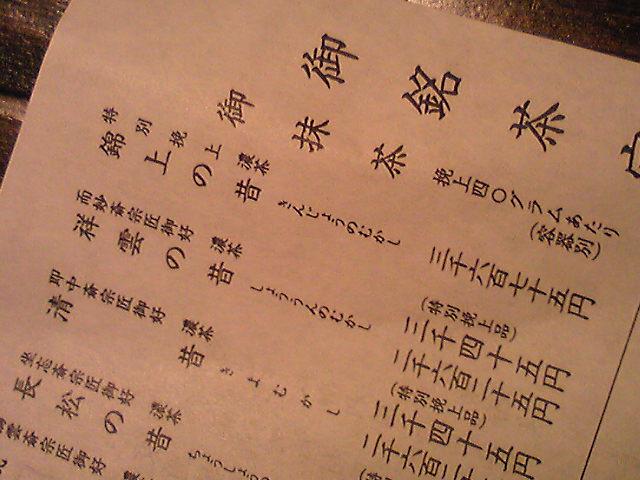 御銘茶
御抹茶
挽上四〇グラムあたり
(容器別)
特別挽上
錦上の昔
濃茶
きんじょうのむかし
三千六百七十五円
而妙斎宗匠御好
祥雲の昔
濃茶
しょううんのむかし
(特別挽上品)
三千四十五円
二千六百二十五円
即中斎宗匠御好
清昔
濃茶
きよむかし
(特別挽上品)
三千四十五円
二千六百二十
長松の昔
濃茶
ちょうしょう
斎宗匠御好